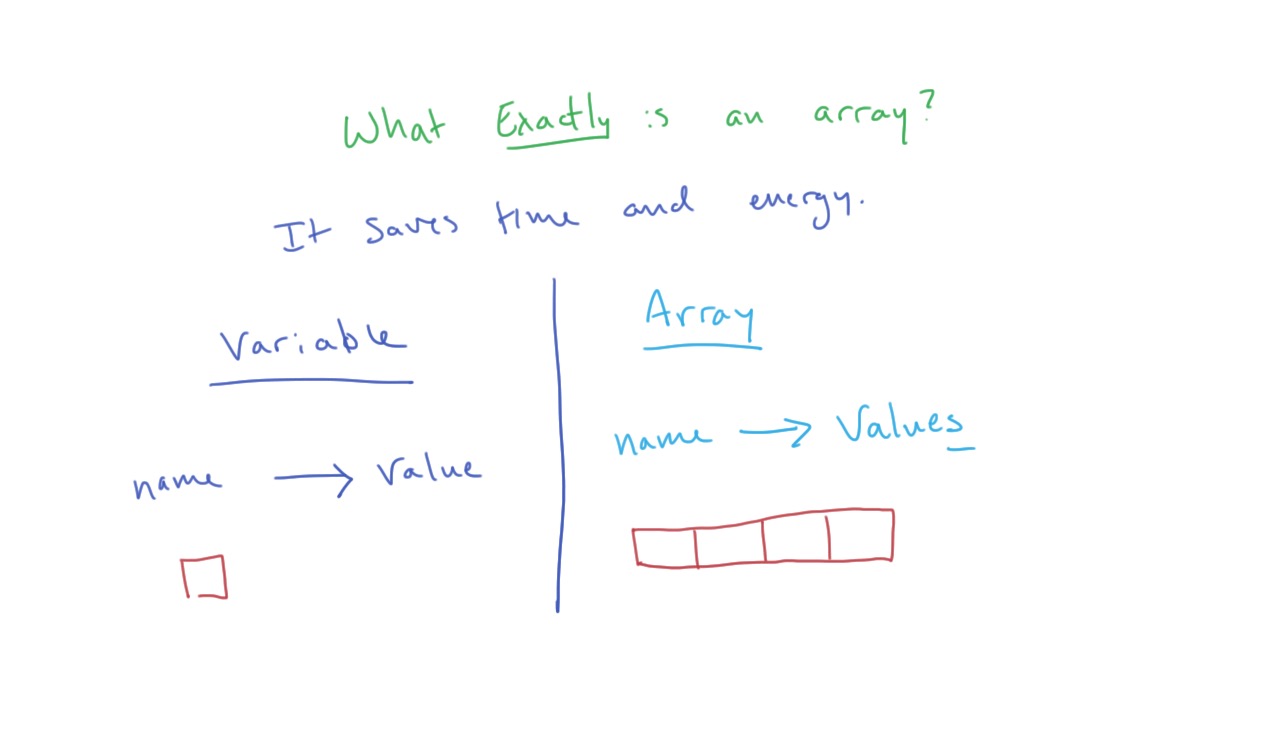 What Exactly is an array?
It saves time and energy.
Variable
name → value
Array
name → values